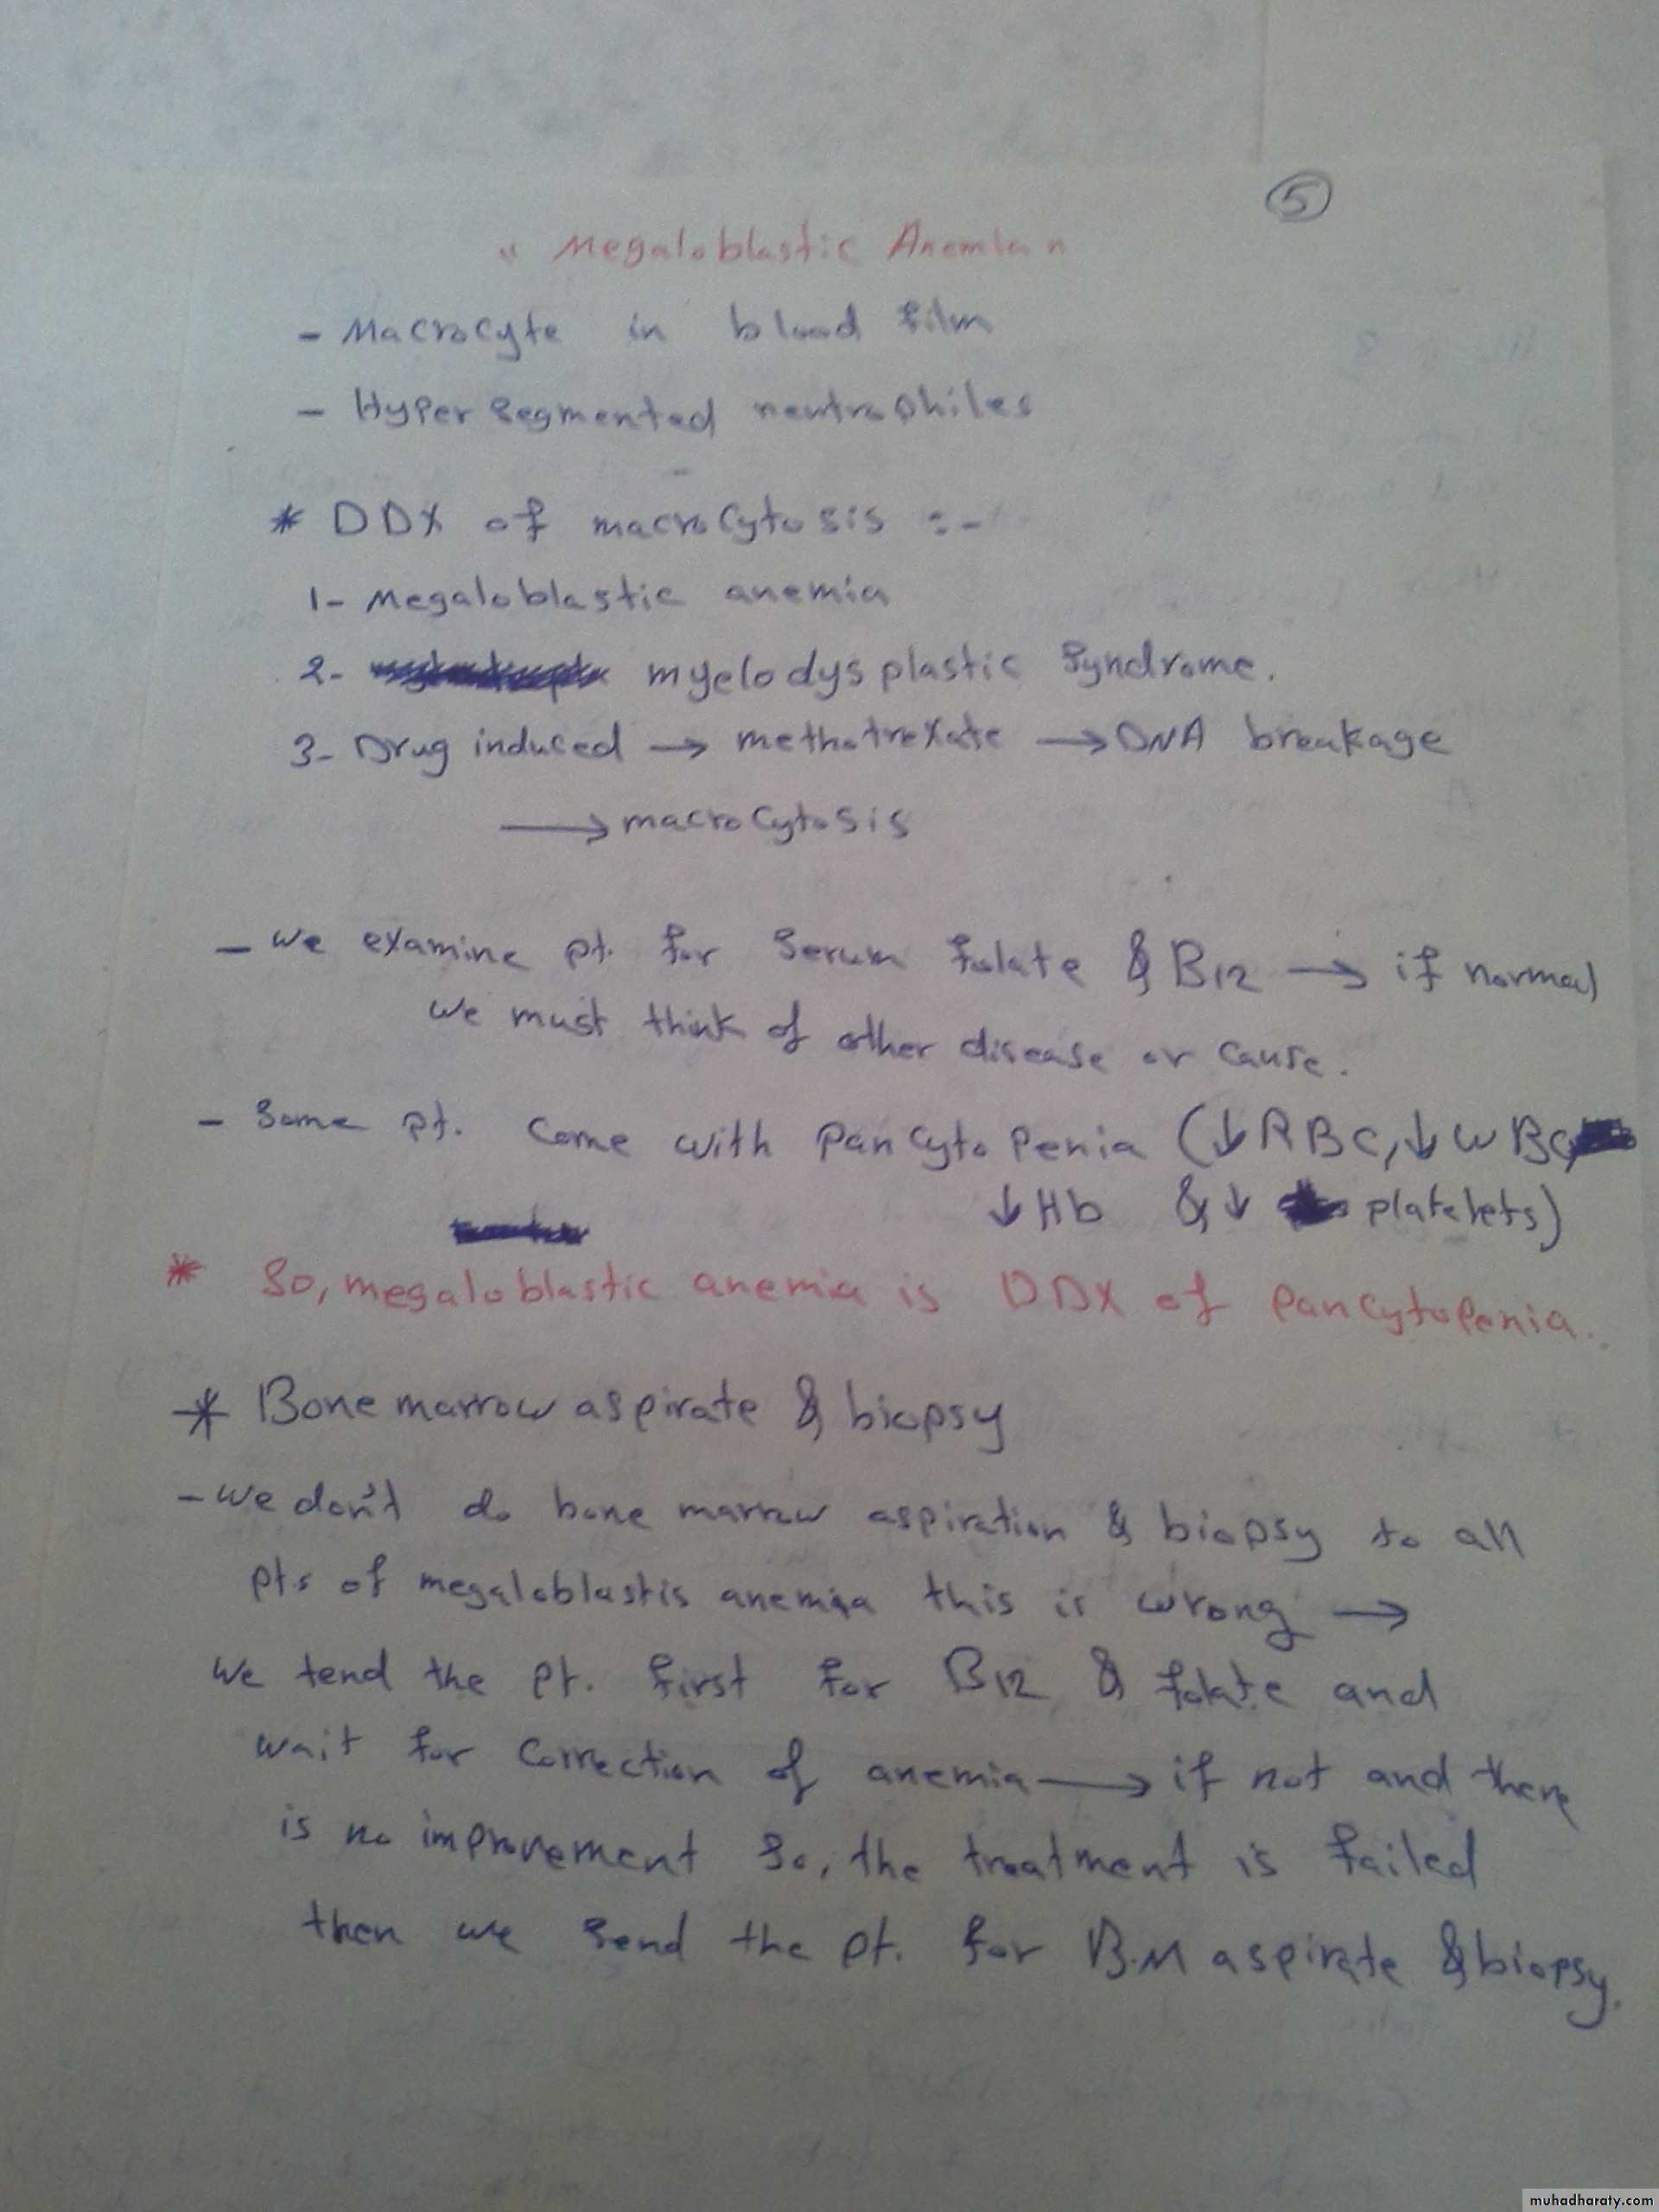 5
" Megaloblastic Anemia "
- Macrocyte in blood film
- Hyper segmented neutrophiles
* DDX of macrocytosis :-
1- Megaloblastic anemia
2- myelodysplastic syndrome.
3- Drug induced → methotrexate → DNA breakage
→ macrocytosis
- we examine pt. for serum folate & B12 → if normal
we must think of other disease or cause.
- Some pt. come with pancytopenia (↓RBC,↓WBC
↓Hb & ↓ platelets)
* So, megaloblastic anemia is DDX of pancytopenia.
* Bone marrow aspirate & biopsy
- we don't do bone marrow aspiration & biopsy to all
pts of megaloblastis anemia this is wrong →
we tend the pt. first for B12 & folate and
wait for correction of anemia → if not and there
is no improvement so, the treatment is failed
then we send the pt. for B.M aspirate & biopsy.
muhadharaty.com